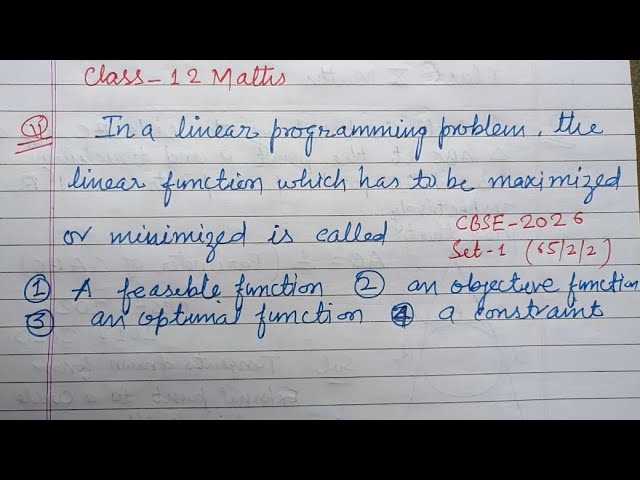 Class-12 Maths
Q In a linear programming problem, the
linear function which has to be maximized
or minimized is called
CBSE-2026
Set-1 (65/2/2)
① A feasible function ② an objective function
③ an optimal function ④ a constraint